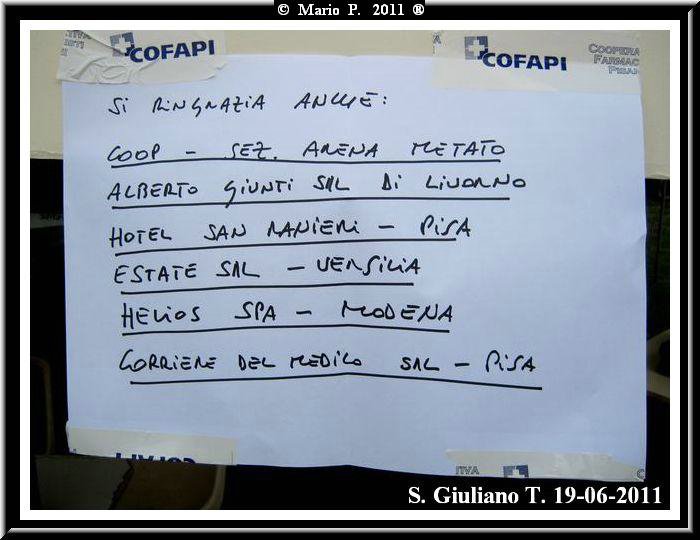 © Mario P. 2011 ®
COFAPI
COFAPI
COOPERA
FARMAC
PISAN
SI RINGRAZIA ANCHE:
COOP - SEZ. ARENA METATO
ALBERTO GIUNTI SRL DI LIVORNO
HOTEL SAN RANIERI - PISA
ESTATE SRL - VERSILIA
HELIOS SPA - MODENA
CORRIERE DEL MEDICO SRL - PISA
COFAPI
TIVA
S. Giuliano T. 19-06-2011